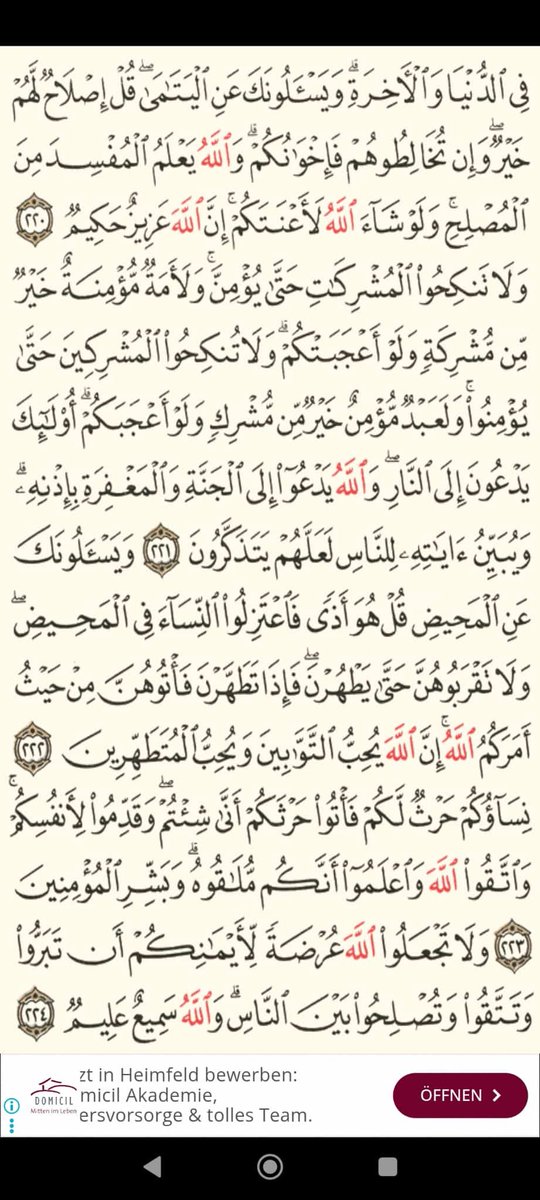 فِى ٱلدُّنْيَا وَٱلْـَٔاخِرَةِ ۗ وَيَسْـَٔلُونَكَ عَنِ ٱلْيَتَـٰمَىٰ ۖ قُلْ إِصْلَاحٌ لَّهُمْ
خَيْرٌ ۖ وَإِن تُخَالِطُوهُمْ فَإِخْوَٰنُكُمْ ۚ وَٱللَّهُ يَعْلَمُ ٱلْمُفْسِدَ مِنَ
ٱلْمُصْلِحِ ۚ وَلَوْ شَآءَ ٱللَّهُ لَأَعْنَتَكُمْ ۚ إِنَّ ٱللَّهَ عَزِيزٌ حَكِيمٌ ٢٢٠
وَلَا تَنكِحُوا۟ ٱلْمُشْرِكَـٰتِ حَتَّىٰ يُؤْمِنَّ ۚ وَلَأَمَةٌ مُّؤْمِنَةٌ خَيْرٌ
مِّن مُّشْرِكَةٍ وَلَوْ أَعْجَبَتْكُمْ ۗ وَلَا تُنكِحُوا۟ ٱلْمُشْرِكِينَ حَتَّىٰ
يُؤْمِنُوا۟ ۚ وَلَعَبْدٌ مُّؤْمِنٌ خَيْرٌ مِّن مُّشْرِكٍ وَلَوْ أَعْجَبَكُمْ ۗ أُو۟لَـٰٓئِكَ
يَدْعُونَ إِلَى ٱلنَّارِ ۖ وَٱللَّهُ يَدْعُوٓا۟ إِلَى ٱلْجَنَّةِ وَٱلْمَغْفِرَةِ بِإِذْنِهِۦ ۖ
وَيُبَيِّنُ ءَايَـٰتِهِۦ لِلنَّاسِ لَعَلَّهُمْ يَتَذَكَّرُونَ ٢٢١ وَيَسْـَٔلُونَكَ
عَنِ ٱلْمَحِيضِ قُلْ هُوَ أَذًى فَٱعْتَزِلُوا۟ ٱلنِّسَآءَ فِى ٱلْمَحِيضِ ۖ
وَلَا تَقْرَبُوهُنَّ حَتَّىٰ يَطْهُرْنَ ۖ فَإِذَا تَطَهَّرْنَ فَأْتُوهُنَّ مِنْ حَيْثُ
أَمَرَكُمُ ٱللَّهُ ۚ إِنَّ ٱللَّهَ يُحِبُّ ٱلتَّوَّٰبِينَ وَيُحِبُّ ٱلْمُتَطَهِّرِينَ ٢٢٢
نِسَآؤُكُمْ حَرْثٌ لَّكُمْ فَأْتُوا۟ حَرْثَكُمْ أَنَّىٰ شِئْتُمْ ۖ وَقَدِّمُوا۟ لِأَنفُسِكُمْ ۚ
وَٱتَّقُوا۟ ٱللَّهَ وَٱعْلَمُوٓا۟ أَنَّكُم مُّلَـٰقُوهُ ۗ وَبَشِّرِ ٱلْمُؤْمِنِينَ
٢٢٣ وَلَا تَجْعَلُوا۟ ٱللَّهَ عُرْضَةً لِّأَيْمَـٰنِكُمْ أَن تَبَرُّوا۟
وَتَتَّقُوا۟ وَتُصْلِحُوا۟ بَيْنَ ٱلنَّاسِ ۗ وَٱللَّهُ سَمِيعٌ عَلِيمٌ ٢٢٤
zt in Heimfeld bewerben:
micil Akademie,
ersvorsorge & tolles Team.
DOMICIL
Mitten im Leben
ÖFFNEN